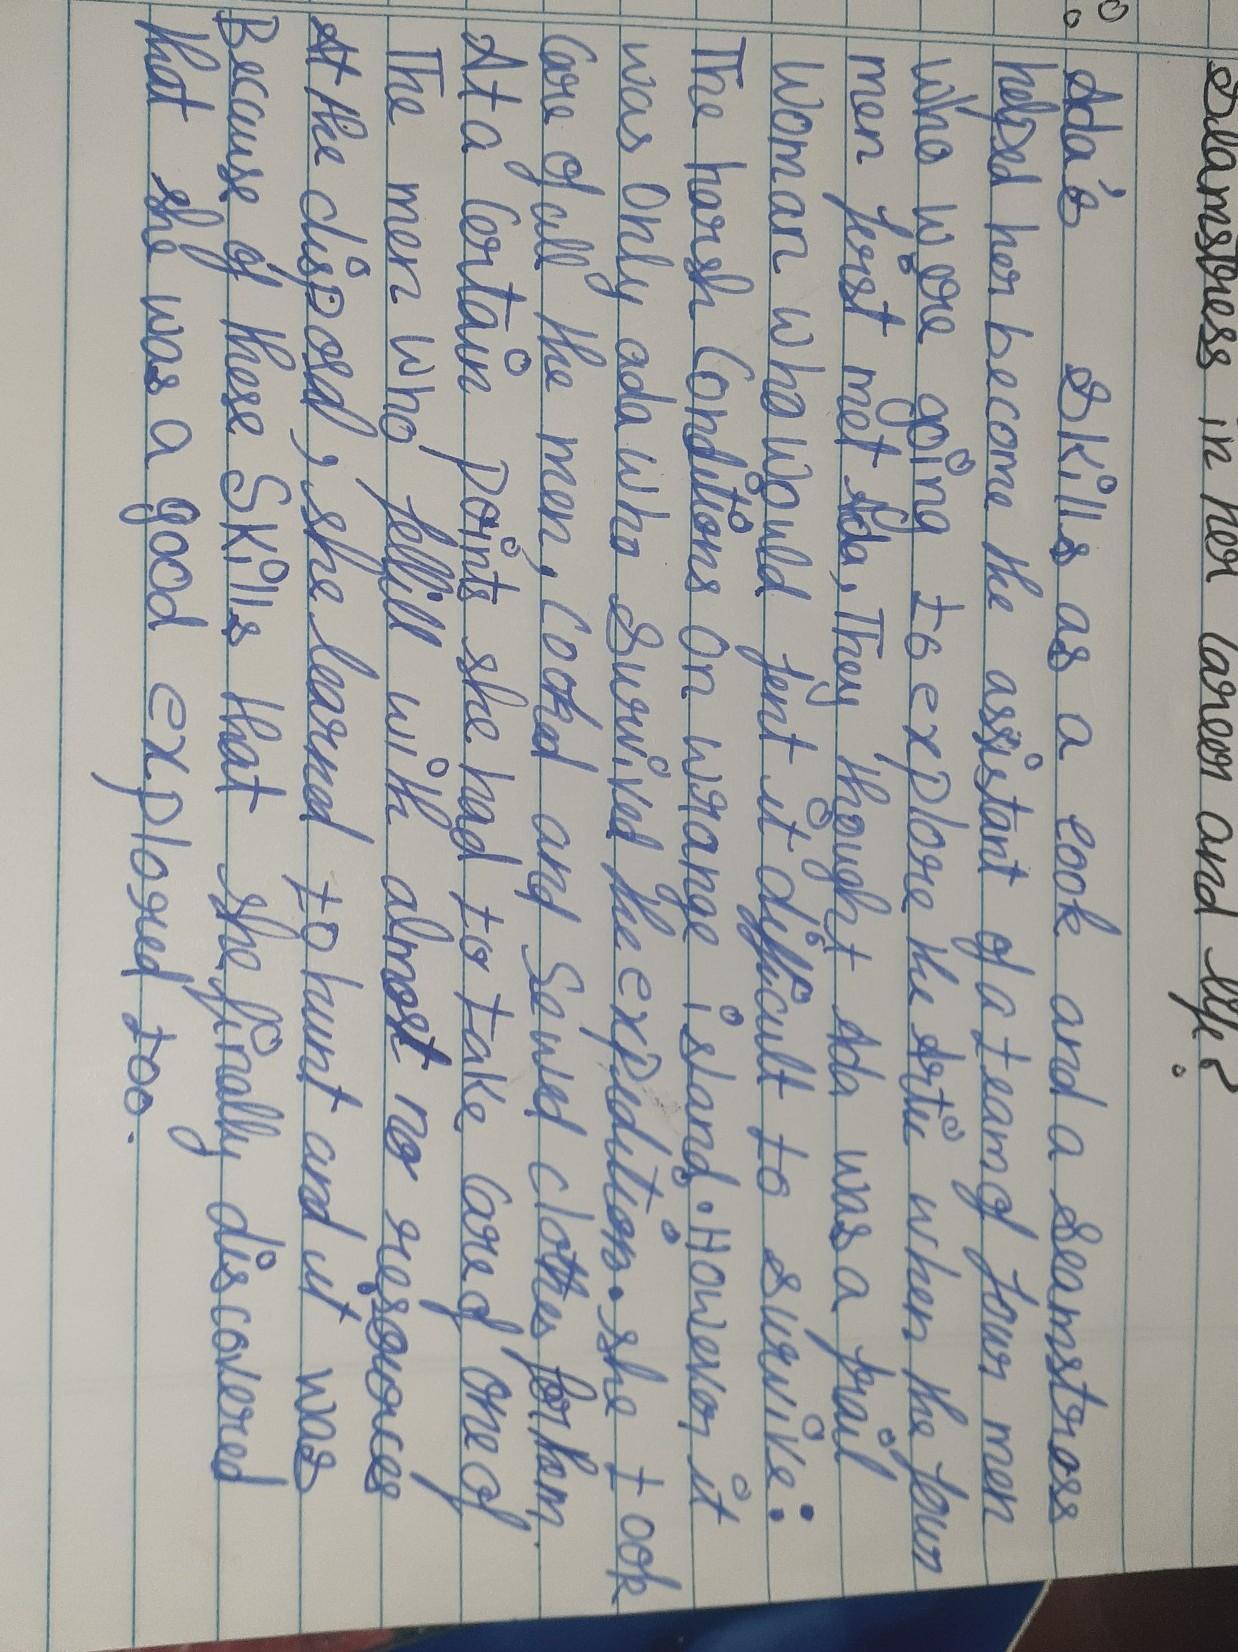 Seamstress in her career and life?
Ada's skills as a cook and a seamstress
helped her become the assistant of a team of four men
who were going to explore the Artic when the four
men first met Ada, They thought Ada was a frail
Woman who would fent it difficult to survive:
The harsh Conditions on wrange island. However it
was Only ada who Survived the expedition. she took
Care of all the men, Cooked and Sewed clothes for them
At a Certain points she had to take Care of one of
The men who fell ill with almost no resources
At the disposd, she learned to hunt and it was
Because of these Skills that she finally discovered
that she was a good explored too.